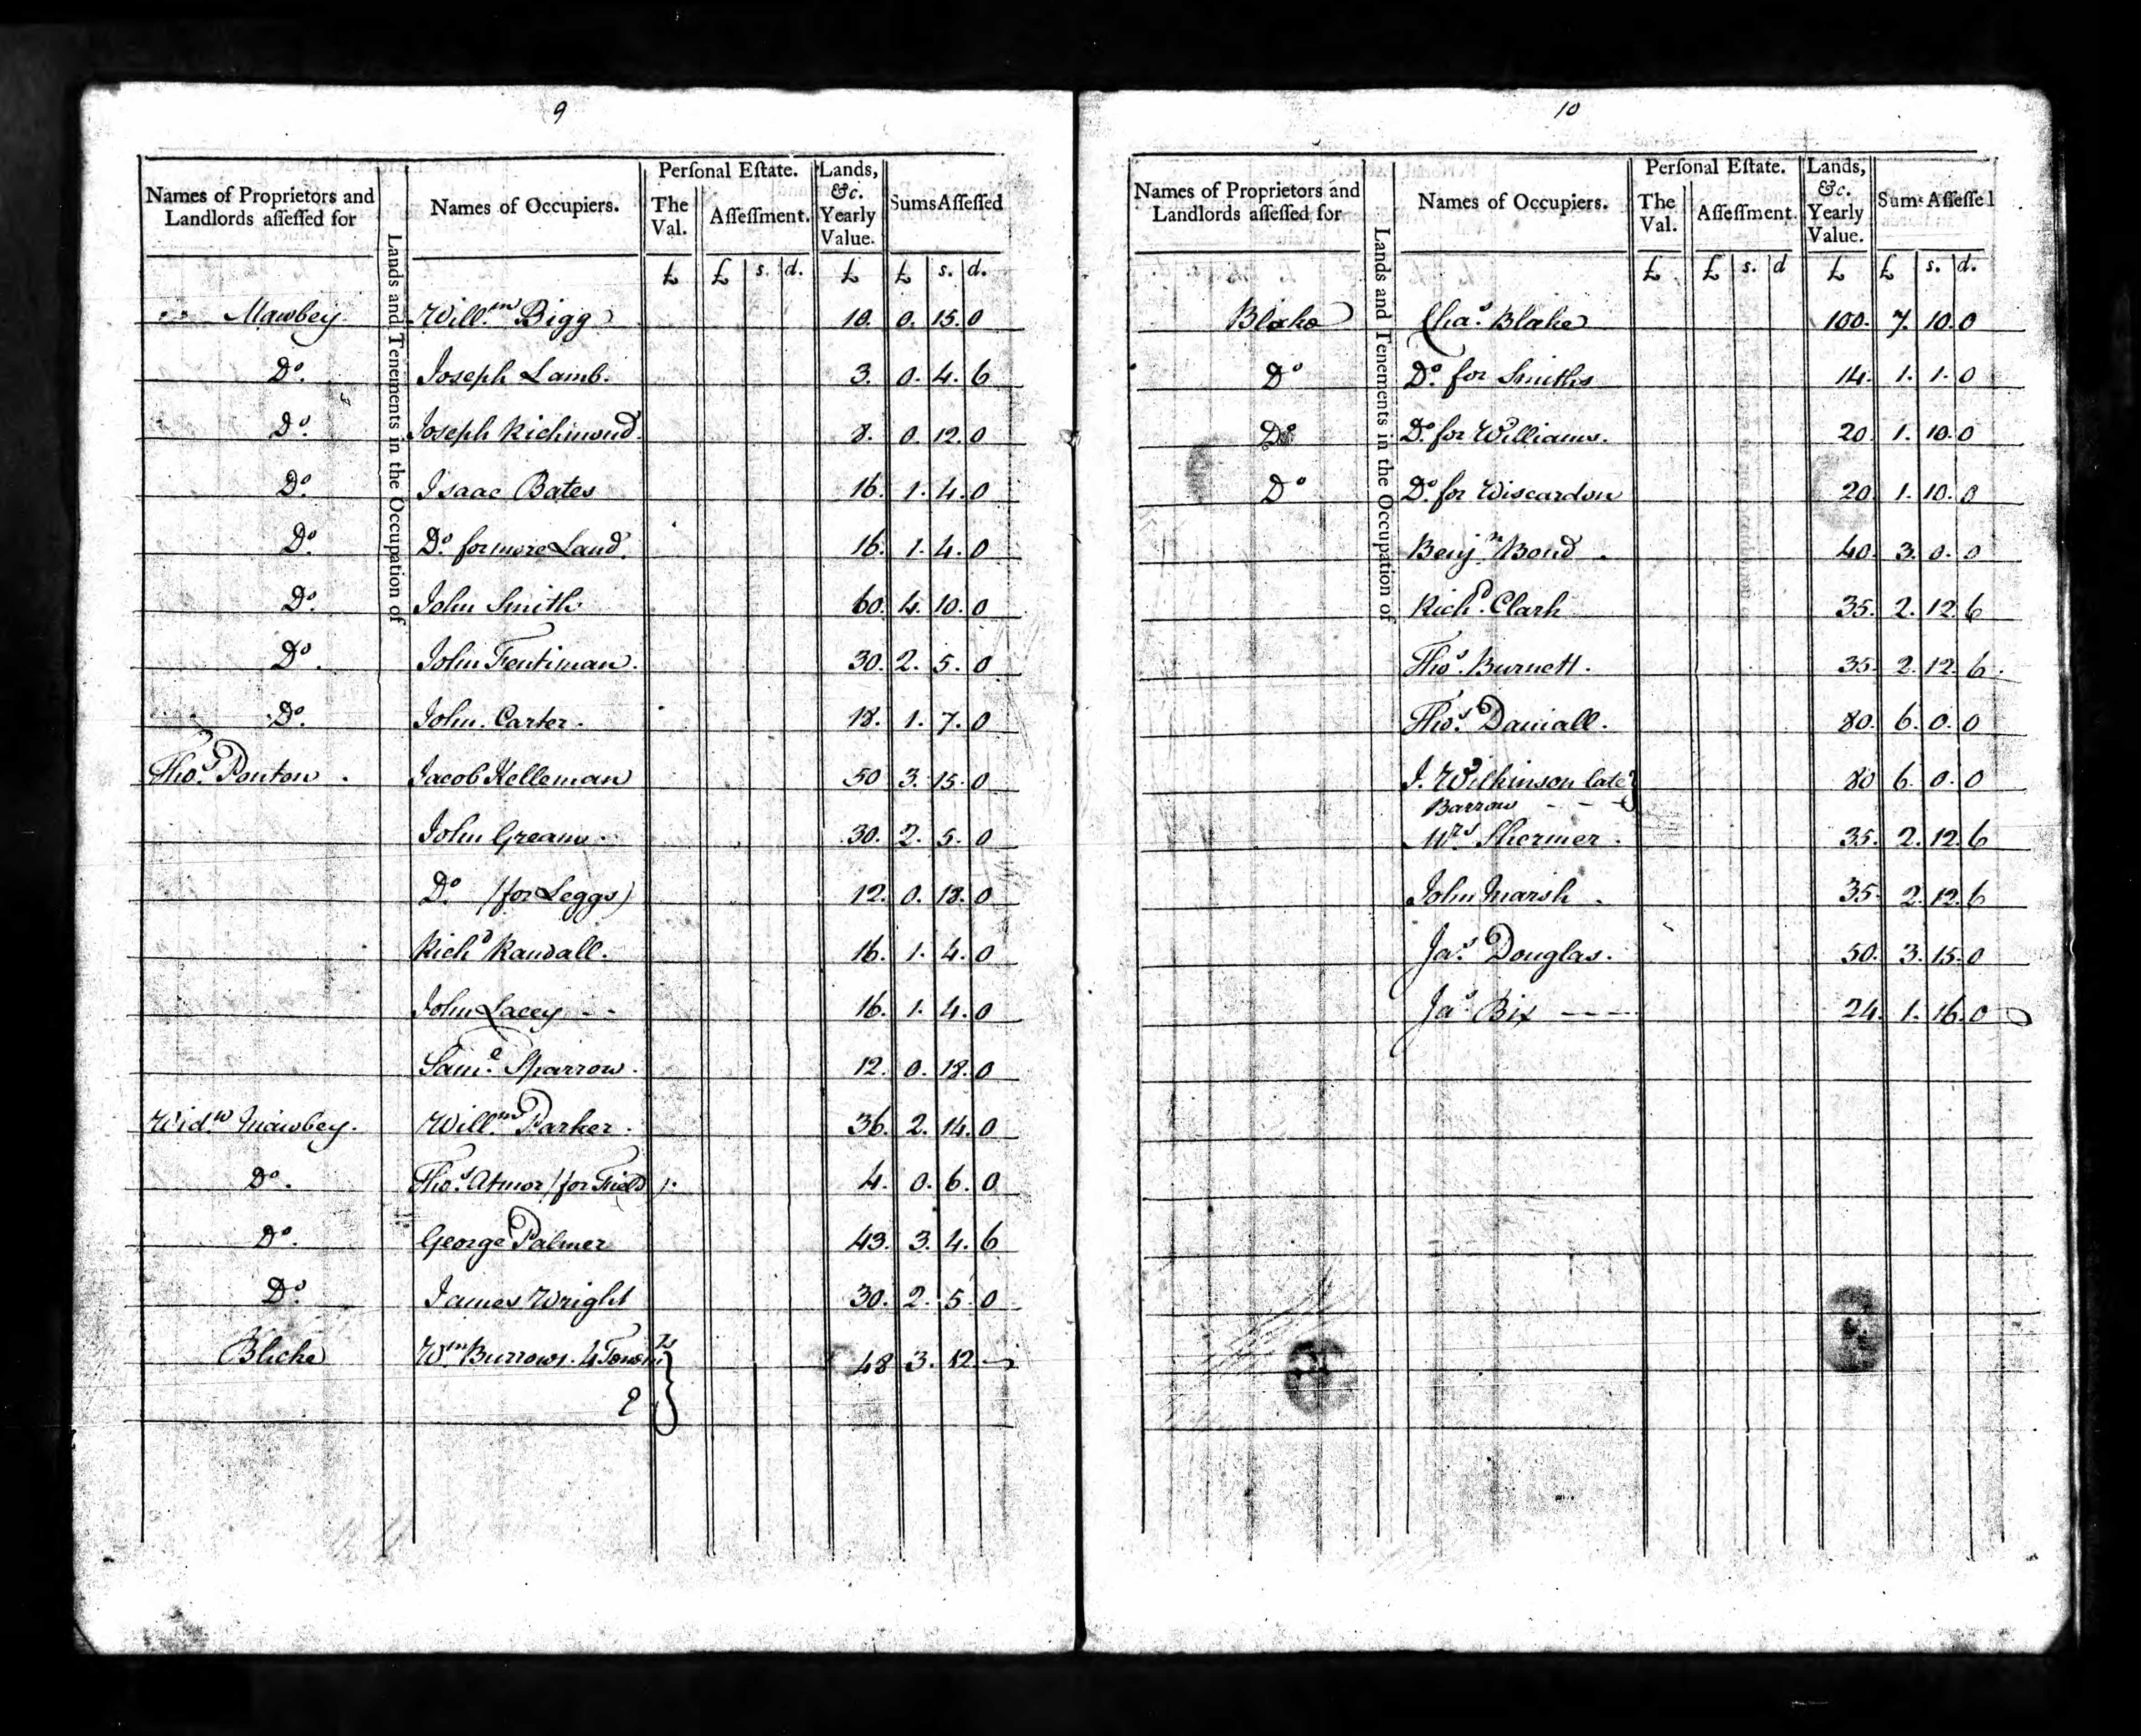 9
Names of Proprietors and Landlords aſſeſſed for | Lands and Tenements in the Occupation of | Names of Occupiers. | Perſonal Eſtate. The Val. | Aſſeſſment. | Lands, &c. Yearly Value. | Sums Aſſeſſed
£ | £ s. d. | £ | £ s. d.
Mawbey | Willm Bigg | 10. 0. 15. 0
Do. | Joseph Lamb. | 3. 0. 4. 6
Do. | Joseph Richmond. | 8. 0. 12. 0
Do. | Isaac Bates | 16. 1. 4. 0
Do. | Do for more Land. | 16. 1. 4. 0
Do. | John Smith | 60. 4. 10. 0
Do. | John Fentiman. | 30. 2. 5. 0
Do. | John Carter. | 18. 1. 7. 0
Thos. Ponton. | Jacob Kelleman | 50 3. 15. 0
John Greame | 30. 2. 5. 0
Do. (for Leggs) | 12. 0. 18. 0
Richd Randall. | 16. 1. 4. 0
John Lacey - - | 16. 1. 4. 0
Saml. Sparrow. | 12. 0. 18. 0
Widw Mawbey. | Willm Parker. | 36. 2. 14. 0
Do. | Thos. Atmor (for Field). | 4. 0. 6. 0
Do. | George Palmer | 43. 3. 4. 6
Do. | James Wright | 30. 2. 5. 0
Blicke | Wm Burrows. 4 Tenemts | 48 3. 12 -
10
Names of Proprietors and Landlords aſſeſſed for | Lands and Tenements in the Occupation of | Names of Occupiers. | Perſonal Eſtate. The Val. | Aſſeſſment. | Lands, &c. Yearly Value. | Sums Aſſeſſed
£ | £ s. d | £ | £ s. d.
Blake | Chas. Blake | 100. 7. 10. 0
Do | Do. for Smiths | 14. 1. 1. 0
Do | Do. for Williams. | 20 1. 10. 0
Do | Do. for Wiscardon | 20 1. 10. 0
Benjn Bond. | 40. 3. 0. 0
Richd. Clark | 35. 2. 12. 6
Thos. Burnett. | 35. 2. 12. 6.
Thos. Daniall. | 80. 6. 0. 0
J. Wilkinson late | 80 6. 0. 0
Barrow - - -
Mrs Shermer. | 35. 2. 12. 6
John Marsh. | 35. 2. 12. 6
Jas. Douglas. | 50. 3. 15. 0
Jas. Bix - - - - | 24. 1. 16. 0